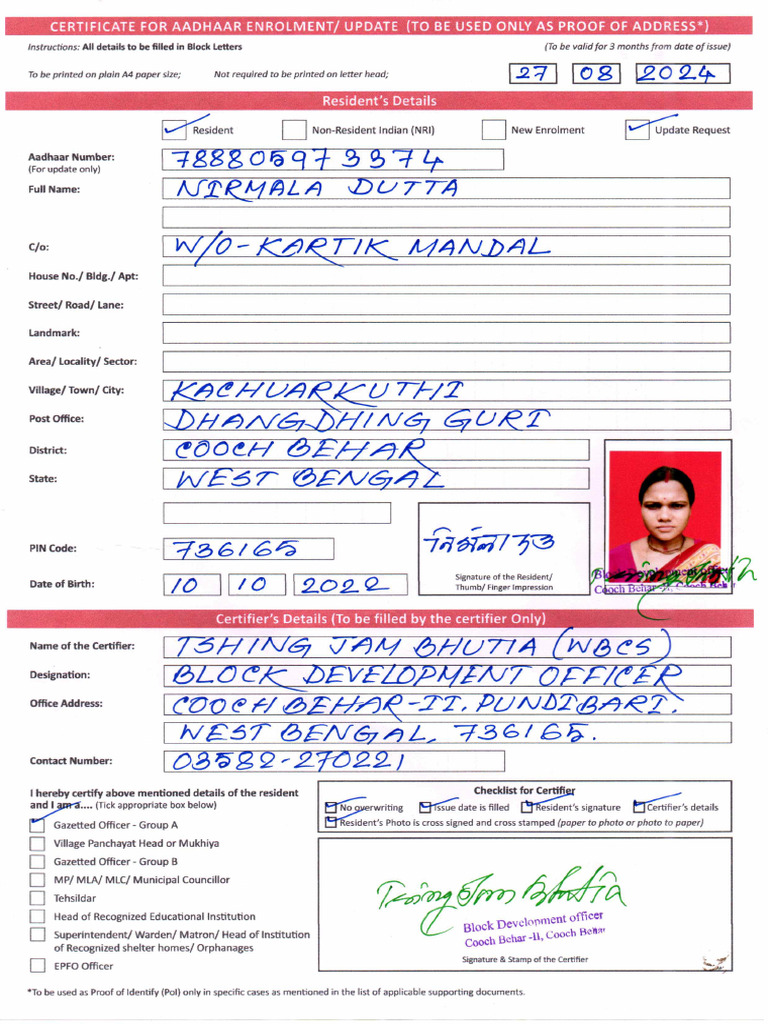 CERTIFICATE FOR AADHAAR ENROLMENT/ UPDATE (TO BE USED ONLY AS PROOF OF ADDRESS*)
Instructions: All details to be filled in Block Letters (To be valid for 3 months from date of issue)
To be printed on plain A4 paper size; Not required to be printed on letter head; 27 08 2024
Resident's Details
Resident Non-Resident Indian (NRI) New Enrolment Update Request
Aadhaar Number: 788805973374
(For update only)
Full Name: NIRMALA DUTTA
C/o: W/O-KARTIK MANDAL
House No./ Bldg./ Apt:
Street/ Road/ Lane:
Landmark:
Area/ Locality/ Sector:
Village/ Town/ City: KACHUARKUTHI
Post Office: DHANGDHING GURI
District: COOCH BEHAR
State: WEST BENGAL
PIN Code: 736165
Signature of the Resident/
Thumb/ Finger Impression
Date of Birth: 10 10 2022
Block Development officer
Cooch Behar-II, Cooch Behar
Certifier's Details (To be filled by the certifier Only)
Name of the Certifier: TSHING JAM BHUTIA (WBCS)
Designation: BLOCK DEVELOPMENT OFFICER
Office Address: COOCH BEHAR-II, PUNDIBARI.
WEST BENGAL, 736165.
Contact Number: 03582-270221
I hereby certify above mentioned details of the resident
and I am a.... (Tick appropriate box below)
Gazetted Officer - Group A
Village Panchayat Head or Mukhiya
Gazetted Officer - Group B
MP/ MLA/ MLC/ Municipal Councillor
Tehsildar
Head of Recognized Educational Institution
Superintendent/ Warden/ Matron/ Head of Institution
of Recognized shelter homes/ Orphanages
EPFO Officer
Checklist for Certifier
No overwriting Issue date is filled Resident's signature Certifier's details
Resident's Photo is cross signed and cross stamped (paper to photo or photo to paper)
Block Development officer
Cooch Behar -II, Cooch Behar
Signature & Stamp of the Certifier
*To be used as Proof of Identify (PoI) only in specific cases as mentioned in the list of applicable supporting documents.